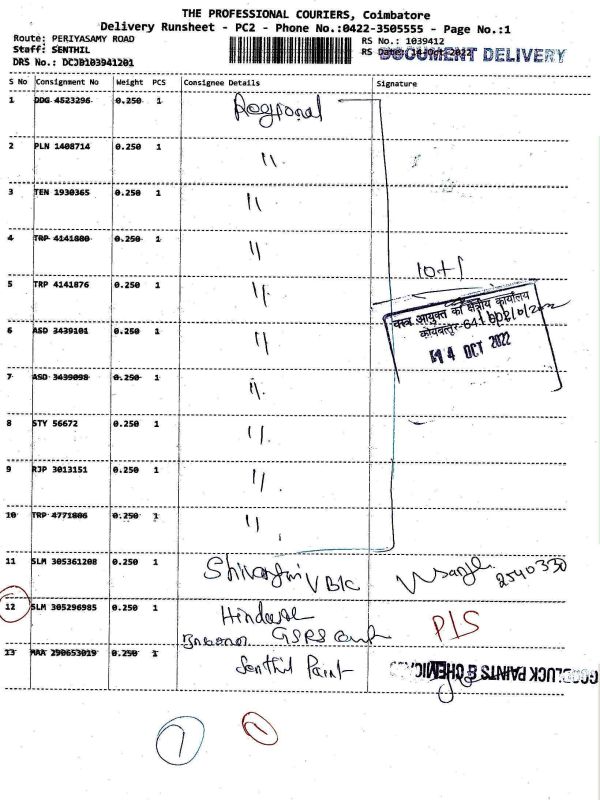 THE PROFESSIONAL COURIERS, Coimbatore
Delivery Runsheet - PC2 - Phone No.:0422-3505555 - Page No.:1
Route: PERIYASAMY ROAD
RS No.: 1039412
Staff: SENTHIL
RS Date: 14-Oct-2022
DOCUMENT DELIVERY
DRS No.: DCJB103941201
S No Consignment No Weight PCS Consignee Details Signature
1 DDG 4523296 0.250 1 Regional
2 PLN 1408714 0.250 1 11.
3 TEN 1930365 0.250 1 11
4 TRP 4141880 0.250 1 11
10+1
5 TRP 4141876 0.250 1 11
वस्त्र आयुक्त का क्षेत्रीय कार्यालय
कोयम्बत्तूर-641
14 OCT 2022
6 ASD 3439101 0.250 1 11
7 ASD 3439098 0.250 1 11.
8 STY 56672 0.250 1 11.
9 RJP 3013151 0.250 1 11.
10 TRP 4771806 0.250 1 11
11 SLM 305361208 0.250 1
2540330
12 SLM 305296985 0.250 1
P/S
13 MAA 290653019 0.250 1 Senthil Paint
GOODLUCK PAINTS & CHEMICALS
1 1